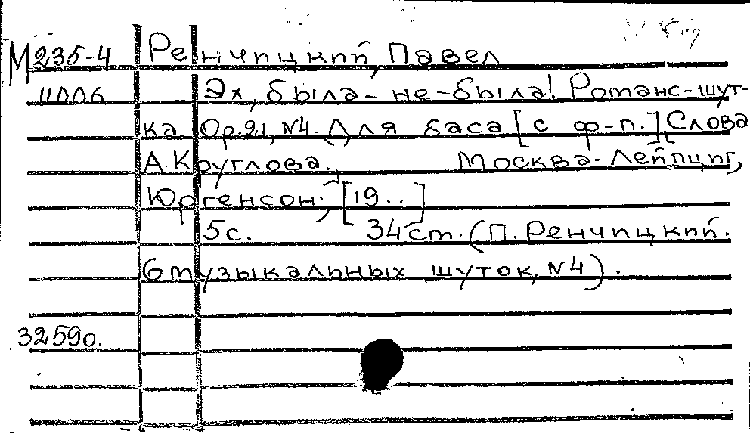 М 235-4 Ренчицкий, Павел
Эх, была-не-была! Романс-шут-
ка. Op. 21, №4. Для баса [с ф-п.] Слова
А Круглова. Москва-Лейпциг,
Юргенсон, [19..]
5с. 34см. (П. Ренчицкий.
6 музыкальных шуток, №4).
32590.